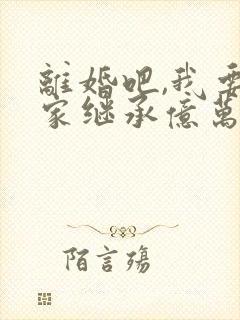 離婚吧,我要
家继承億萬
陌言殤